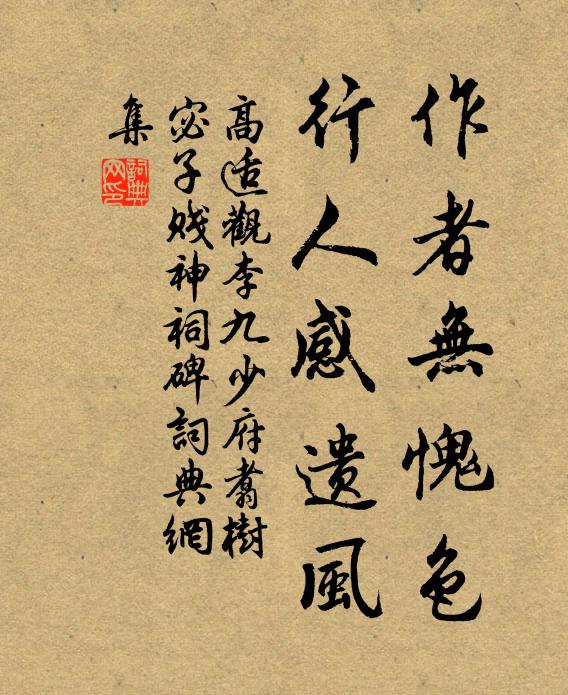 作者無愧色
行人感遺風
高適觀李九少府翥樹
宓子賤神祠碑詞典網
集
詞典网印